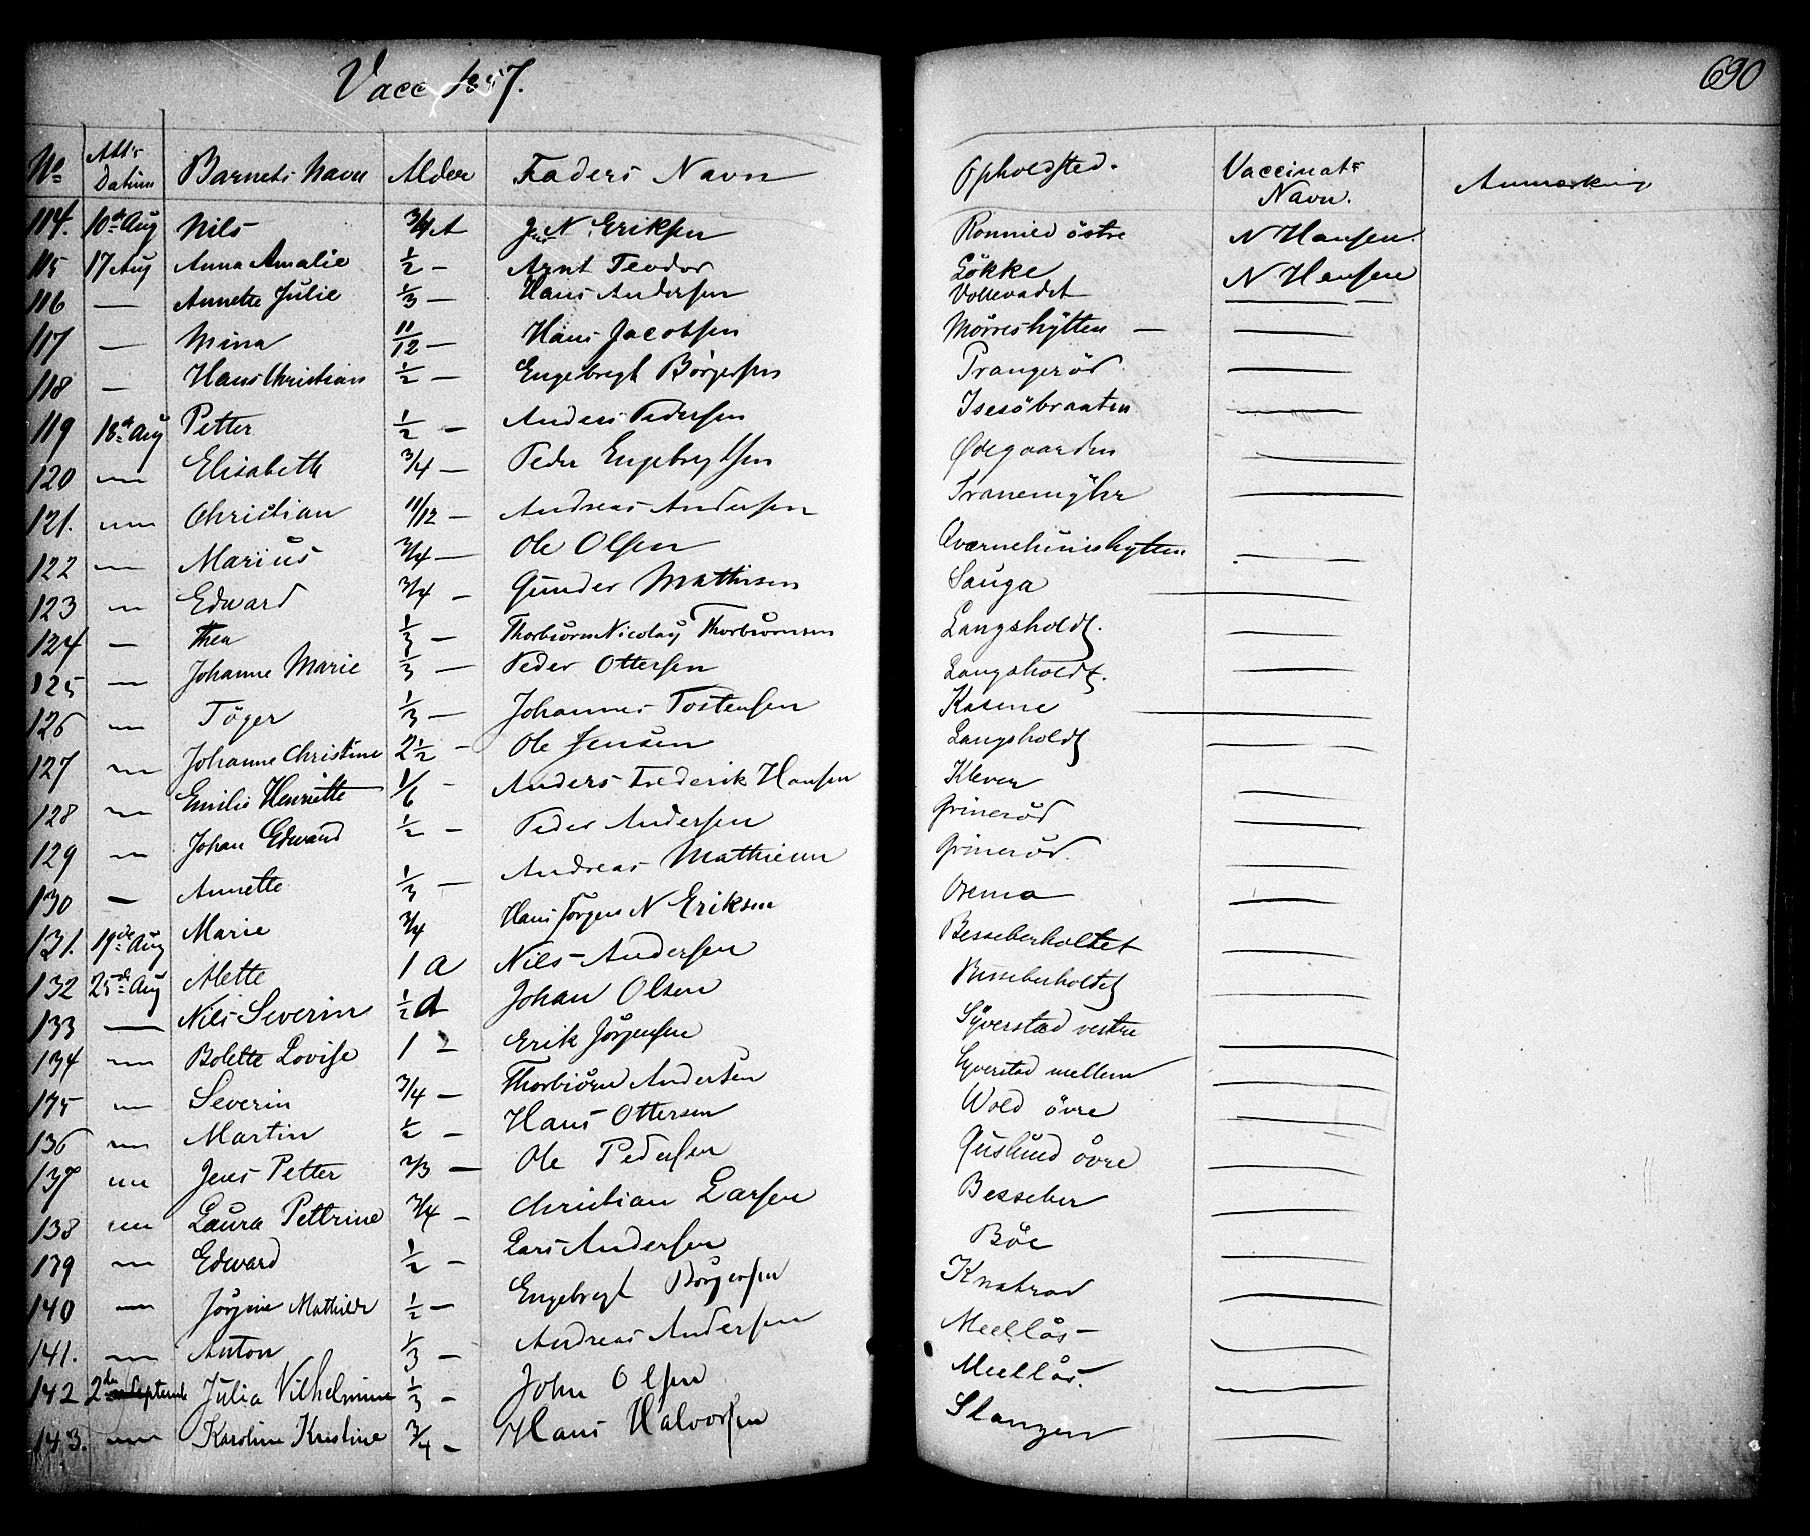 Vacc 1857.
690
No Att's Datum Barnets Navn Alder Faders Navn Opholdsted. Vaccinats Navn. Anmærkning
114. 10de Aug Nils 3/4 A Jens N. Eriksen Ronnild östre N Hansen.
115 17 Aug Anna Amalie 1/2 – Arnt Teodor Lökke N Hansen
116 — Annette Julie 1/3 – Hans Andersen Vollevadet —
117 — Mina 11/12 – Hans Jacobsen Mörreshytten —
118 — Hans Christian 1/2 – Engebregt Börgersen Prangeröd —
119 18de Aug Petter 1/2 – Anders Pedersen Isesöbraaten —
120 — Elisabeth 3/4 – Peder Engebregtsen Ødegaarden —
121. — Christian 11/12 – Andreas Andersen Tranemyhr —
122 — Marius 3/4 – Ole Olsen Qværnehuushytten —
123 — Edward 3/4 – Gunder Mathisen Sauga —
124 — Thea 1/3 – Thorbiörn Nicolay Thorbiörnsen Langsholdt. —
125 — Johanne Marie 1/3 – Peder Ottersen Langsholdt. —
126 — Töger 1/3 – Johannes Tostensen Kasene —
127 — Johanne Christine 2 1/2 – Ole Jensen Langsholdt —
128 — Emilie Henriette 1/6 – Anders Frederik Hansen Klever —
129 — Johan Edward 1/2 – Peder Andersen Grineröd —
130 — Annette 1/3 – Andreas Mathisen Grineröd. —
131. 19de Aug Marie 3/4 Hans Jörgen N Eriksen Orema —
132 25de Aug Alette 1 a Nils Andersen Besseberholtet —
133 — Nils Severin 1/2 A Johan Olsen Besseberholdet —
134 — Bolette Lovise 1 – Erik Jörgensen Syverstad vestre —
135 — Severin 3/4 – Thorbiörn Andersen Syverstad mellem —
136 — Martin 1/2 – Hans Ottersen Wold övre —
137 — Jens Petter 2/3 – Ole Pedersen Guslund övre —
138 — Laura Pettrine 3/4 – Christian Larsen Besseber —
139 — Edward 1/2 – Lars Andersen Böe —
140 — Jörgine Mathilde 1/2 – Engebregt Börgersen Knatrød —
141. — Anton 1/3 – Andreas Andersen Meellås —
142 2den Septemb Julia Vilhelmine 1/3 – John Olsen Meellås. —
143. — Karoline Kristine 3/4 – Hans Halvorsen Slangen —